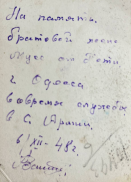 На память
братовой жене
Мусе от Пети
г. Одесса
вовремя службы
в С. Армии.
6/XII-48 г.